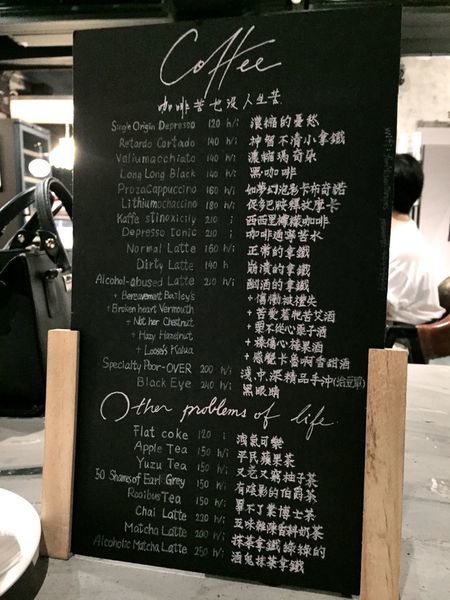 Coffee
咖啡苦也沒人生苦
Single Origin Depresso 120 h/i 濃縮的憂愁
Retardo Cortado 140 h/i 神智不清小拿鐵
Valiumacchiato 140 h/i 濃縮瑪奇朵
Long Long Black 140 h/i 黑咖啡
ProzaCappuccino 160 h/i 如夢幻泡影卡布奇諾
Lithiumochaccino 180 h/i 促多巴胺釋放摩卡
Kaffe stinoxicily 210 i 西西里檸檬咖啡
Depresso tonic 210 i 咖啡通寧苦水
Normal Latte 160 h/i 正常的拿鐵
Dirty Latte 140 h 崩潰的拿鐵
Alcohol-abused Latte 210 h/i 酗酒的拿鐵
+ Bereavement Bailey's +傷慟被擅失
+ Broken heart Vermouth +苦愛莫能苦艾酒
+ Not her Chestnut +栗不從心栗子酒
+ Hazy Hazelnut +榛傷心榛果酒
+ Loosa's Kalua
Specialty Poor-OVER 200 h/i 淺.中.深精品手沖
Black Eye 240 h/i 黑眼睛
Other problems of life
Flat coke 120 i 洩氣可樂
Apple Tea 150 h/i 平民蘋果茶
Yuzu Tea 150 h/i 又老又窮柚子茶
50 Shames of Earl Grey 150 h/i 有陰影的伯爵茶
Rooibus Tea 150 h/i 畢不了業博士茶
Chai Latte 220 h/i 五味雜陳香料奶茶
Matcha Latte 200 h/i 抹茶拿鐵綠綠的
Alcoholic Matcha Latte 250 h/i 酒鬼抹茶拿鐵